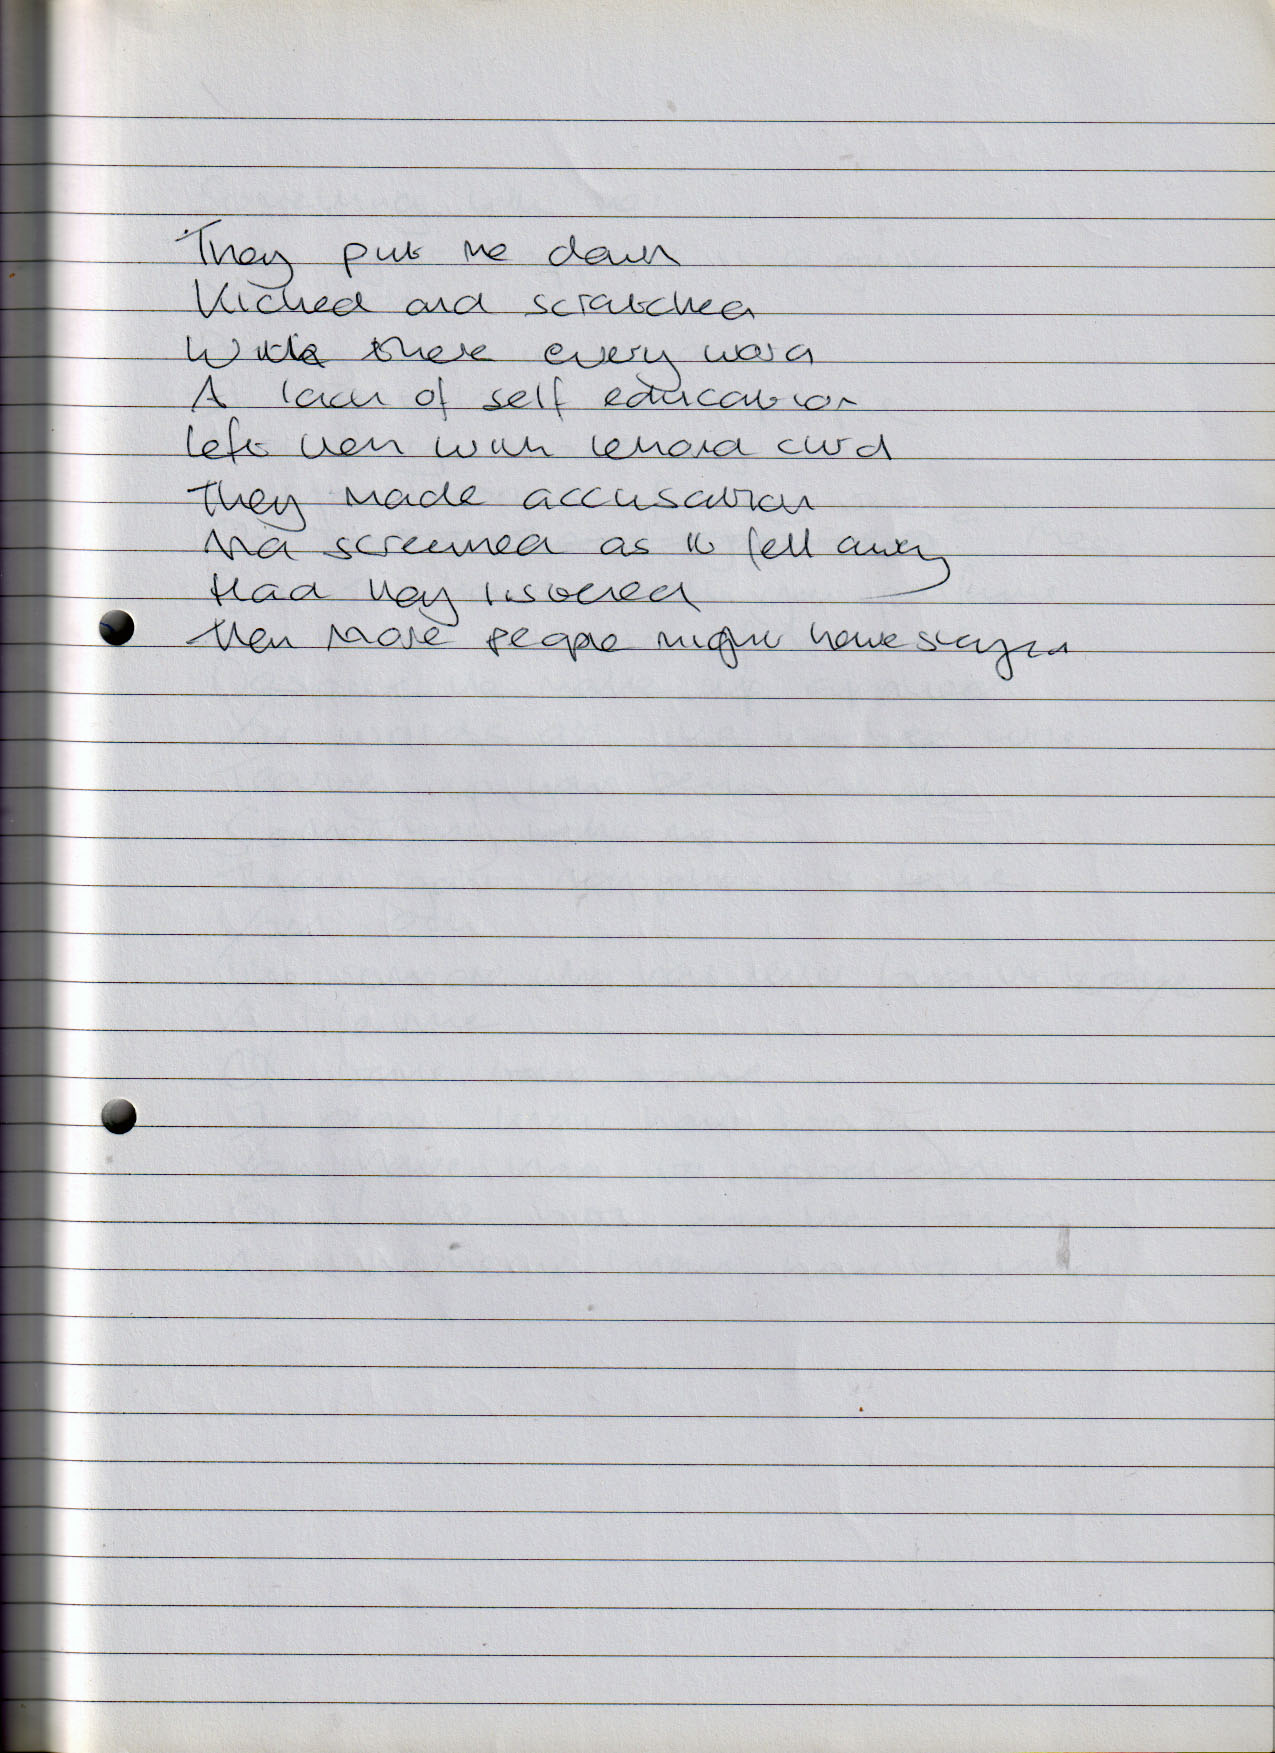 They put me down
Kicked and scratched
With there every word
A lack of self education
left them with lemond curd
They made accusation
And screemed as it fell away
Had they listened
then more people might have stayed